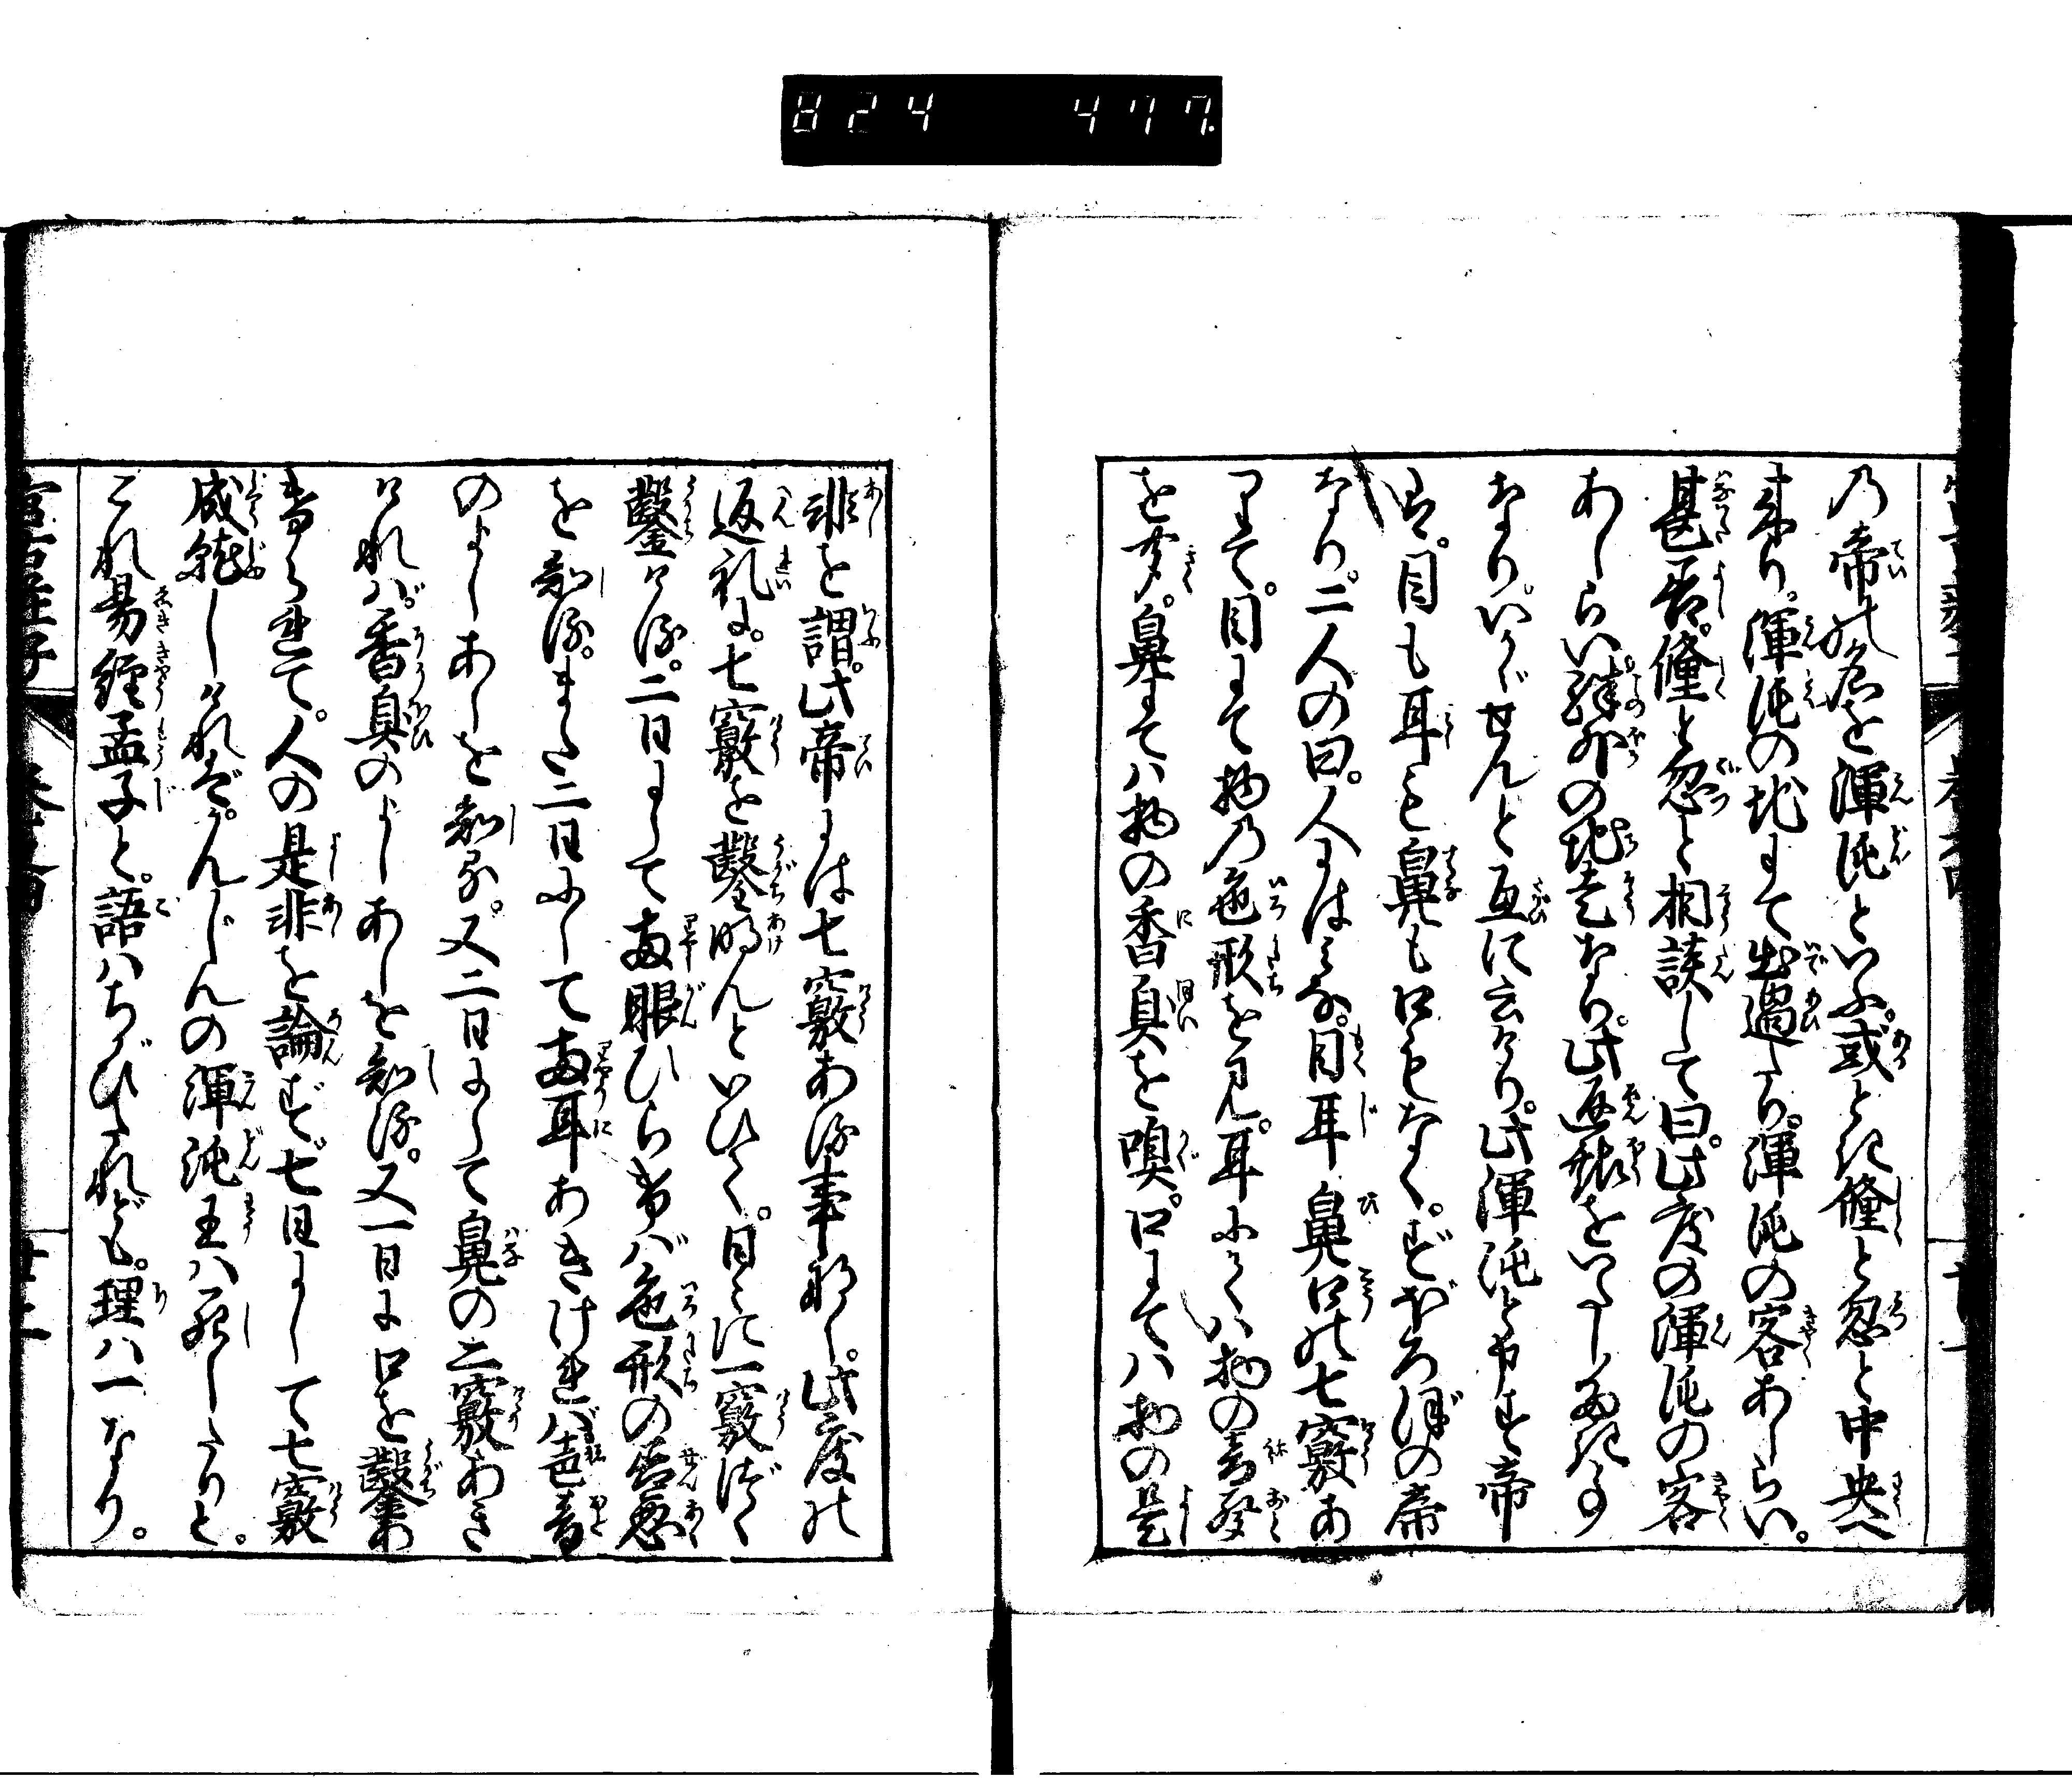 824 477
乃帝の名を渾沌といふ。或とき儵と忽と中央へ
来り。渾沌の地にて出遇たり。渾沌の客あしらい。
甚善。儵と忽と相談して曰。此度の渾沌の客
あしらい。殊外の馳走なり。此返報をいたしたき事
なり。いかゞせんと互に云けり。此渾沌と申す帝
は。目も耳も鼻も口もなく。ずんぼろぼの帝
なり。二人の曰。人にはみな。目耳鼻口の七竅あ
りて。目にて物乃色形を見。耳にては物の音聲
を聞。鼻にてハ物の香臭を嗅。口にてハ物の是
非を謂。此帝には七竅ある事なし。此度の
返礼に。七竅を鑿明んといひて。日々に一竅づゝ
鑿ける。二日にして両眼ひらけれバ色形の善悪
を知る。また二日にして両耳あきければ声音
のよしあしを知る。又二日にして鼻の二竅あき
けれバ。香臭のよしあしを知る。又一日に口を鑿あ
けられて。人の是非を論ず。七日にして七竅
成就しけれど。かんじんの渾沌王ハ死したりと。
これ易経孟子と。語ハちがひたれども。理ハ一なり。